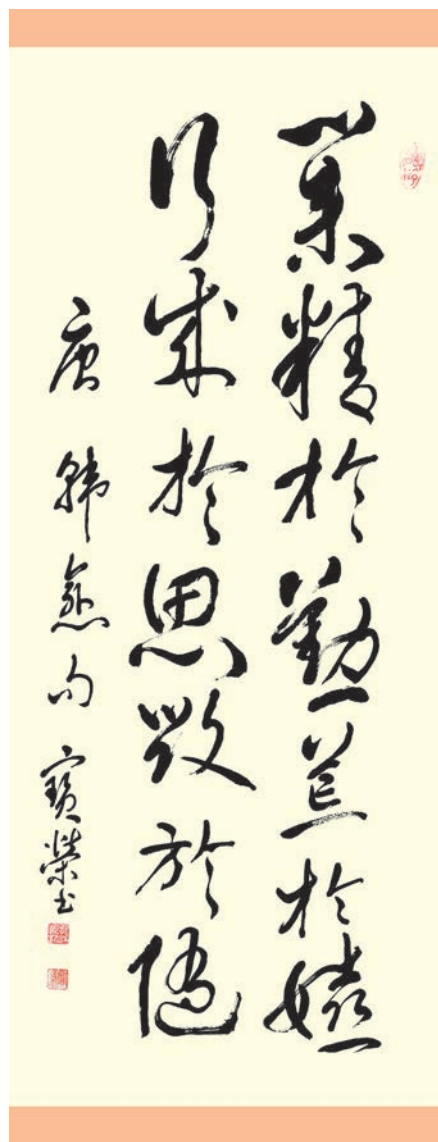 業精於勤荒於嬉
行成於思毀於隨
唐 韓愈句 寶榮書